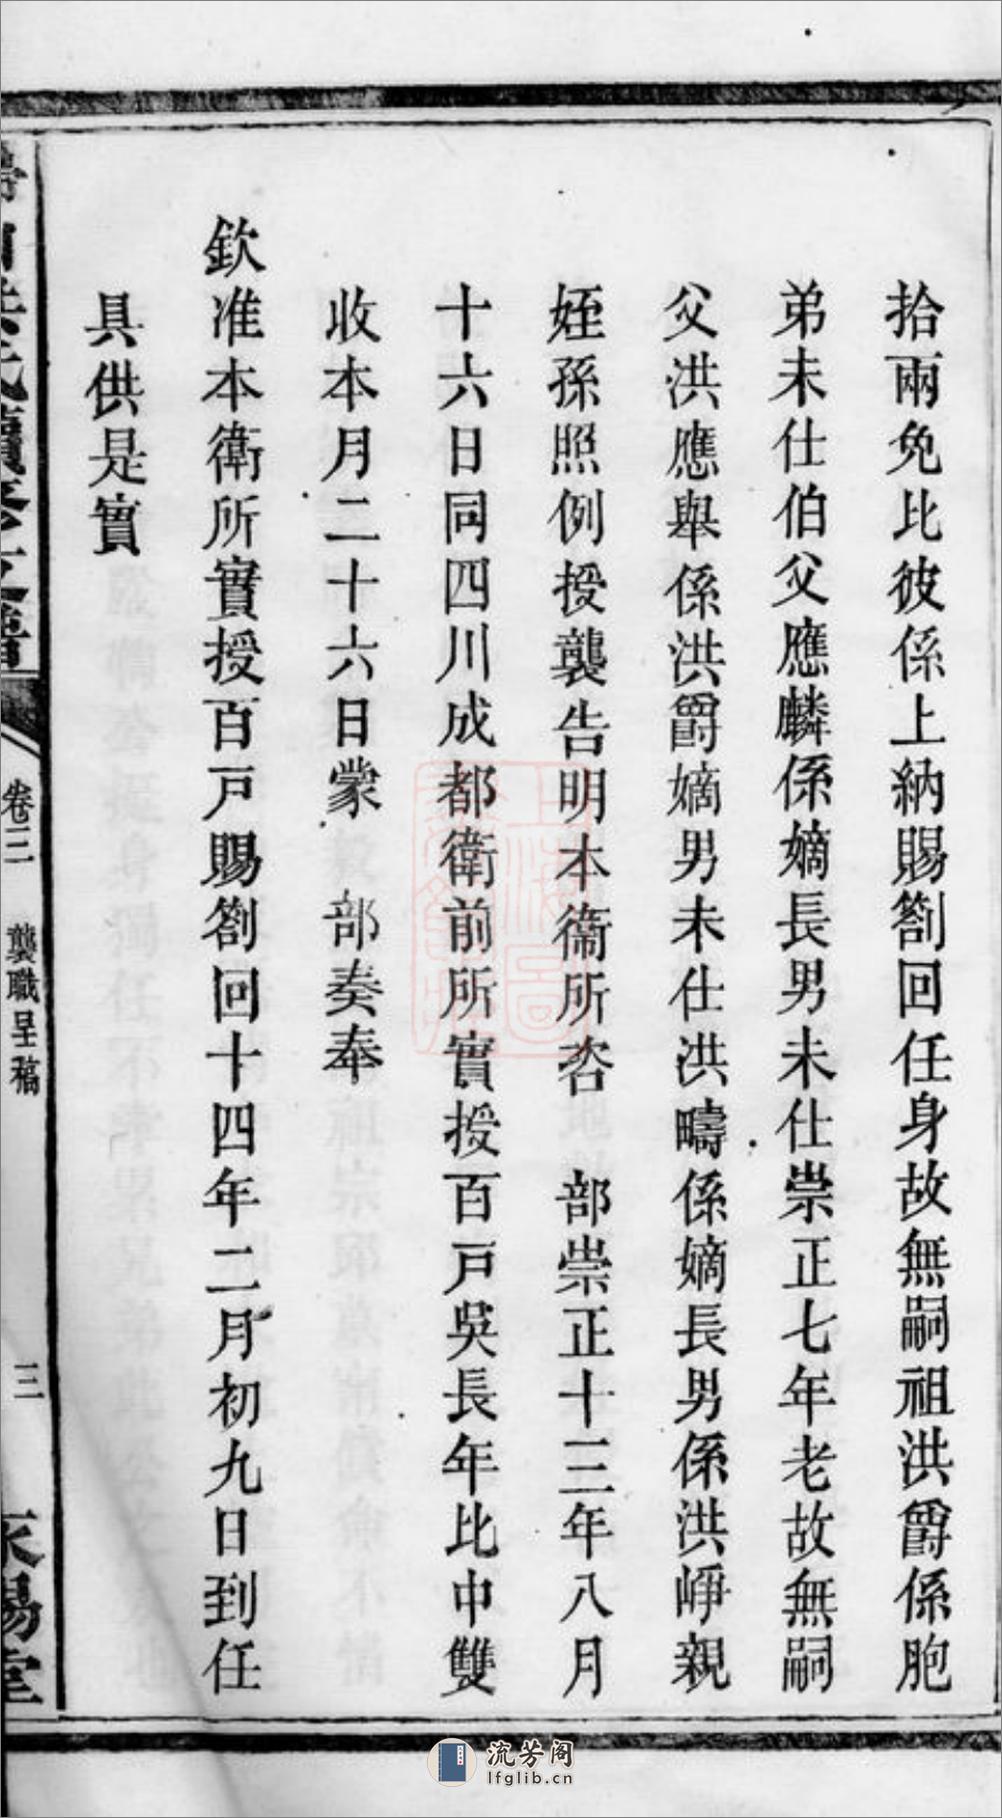 拾兩免比彼係上納賜劄回任身故無嗣祖洪爵係胞
弟未仕伯父應麟係嫡長男未仕崇正七年老故無嗣
父洪應舉係洪爵嫡男未仕洪疇係嫡長男係洪崢親
姪孫照例授襲告明本衞所咨 部崇正十三年八月
十六日同四川成都衛前所實授百戶吳長年比中雙
收本月二十六日蒙 部奏奉
欽准本衛所實授百戶賜劄回十四年二月初九日到任
具供是實
卷三 襲職呈稿 三
流芳阁
lfglib.cn